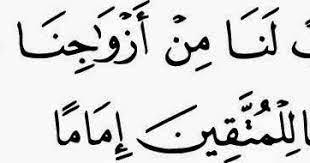 لَنَا مِنْ أَزْوَٰجِنَا
لِلْمُتَّقِينَ إِمَامًا